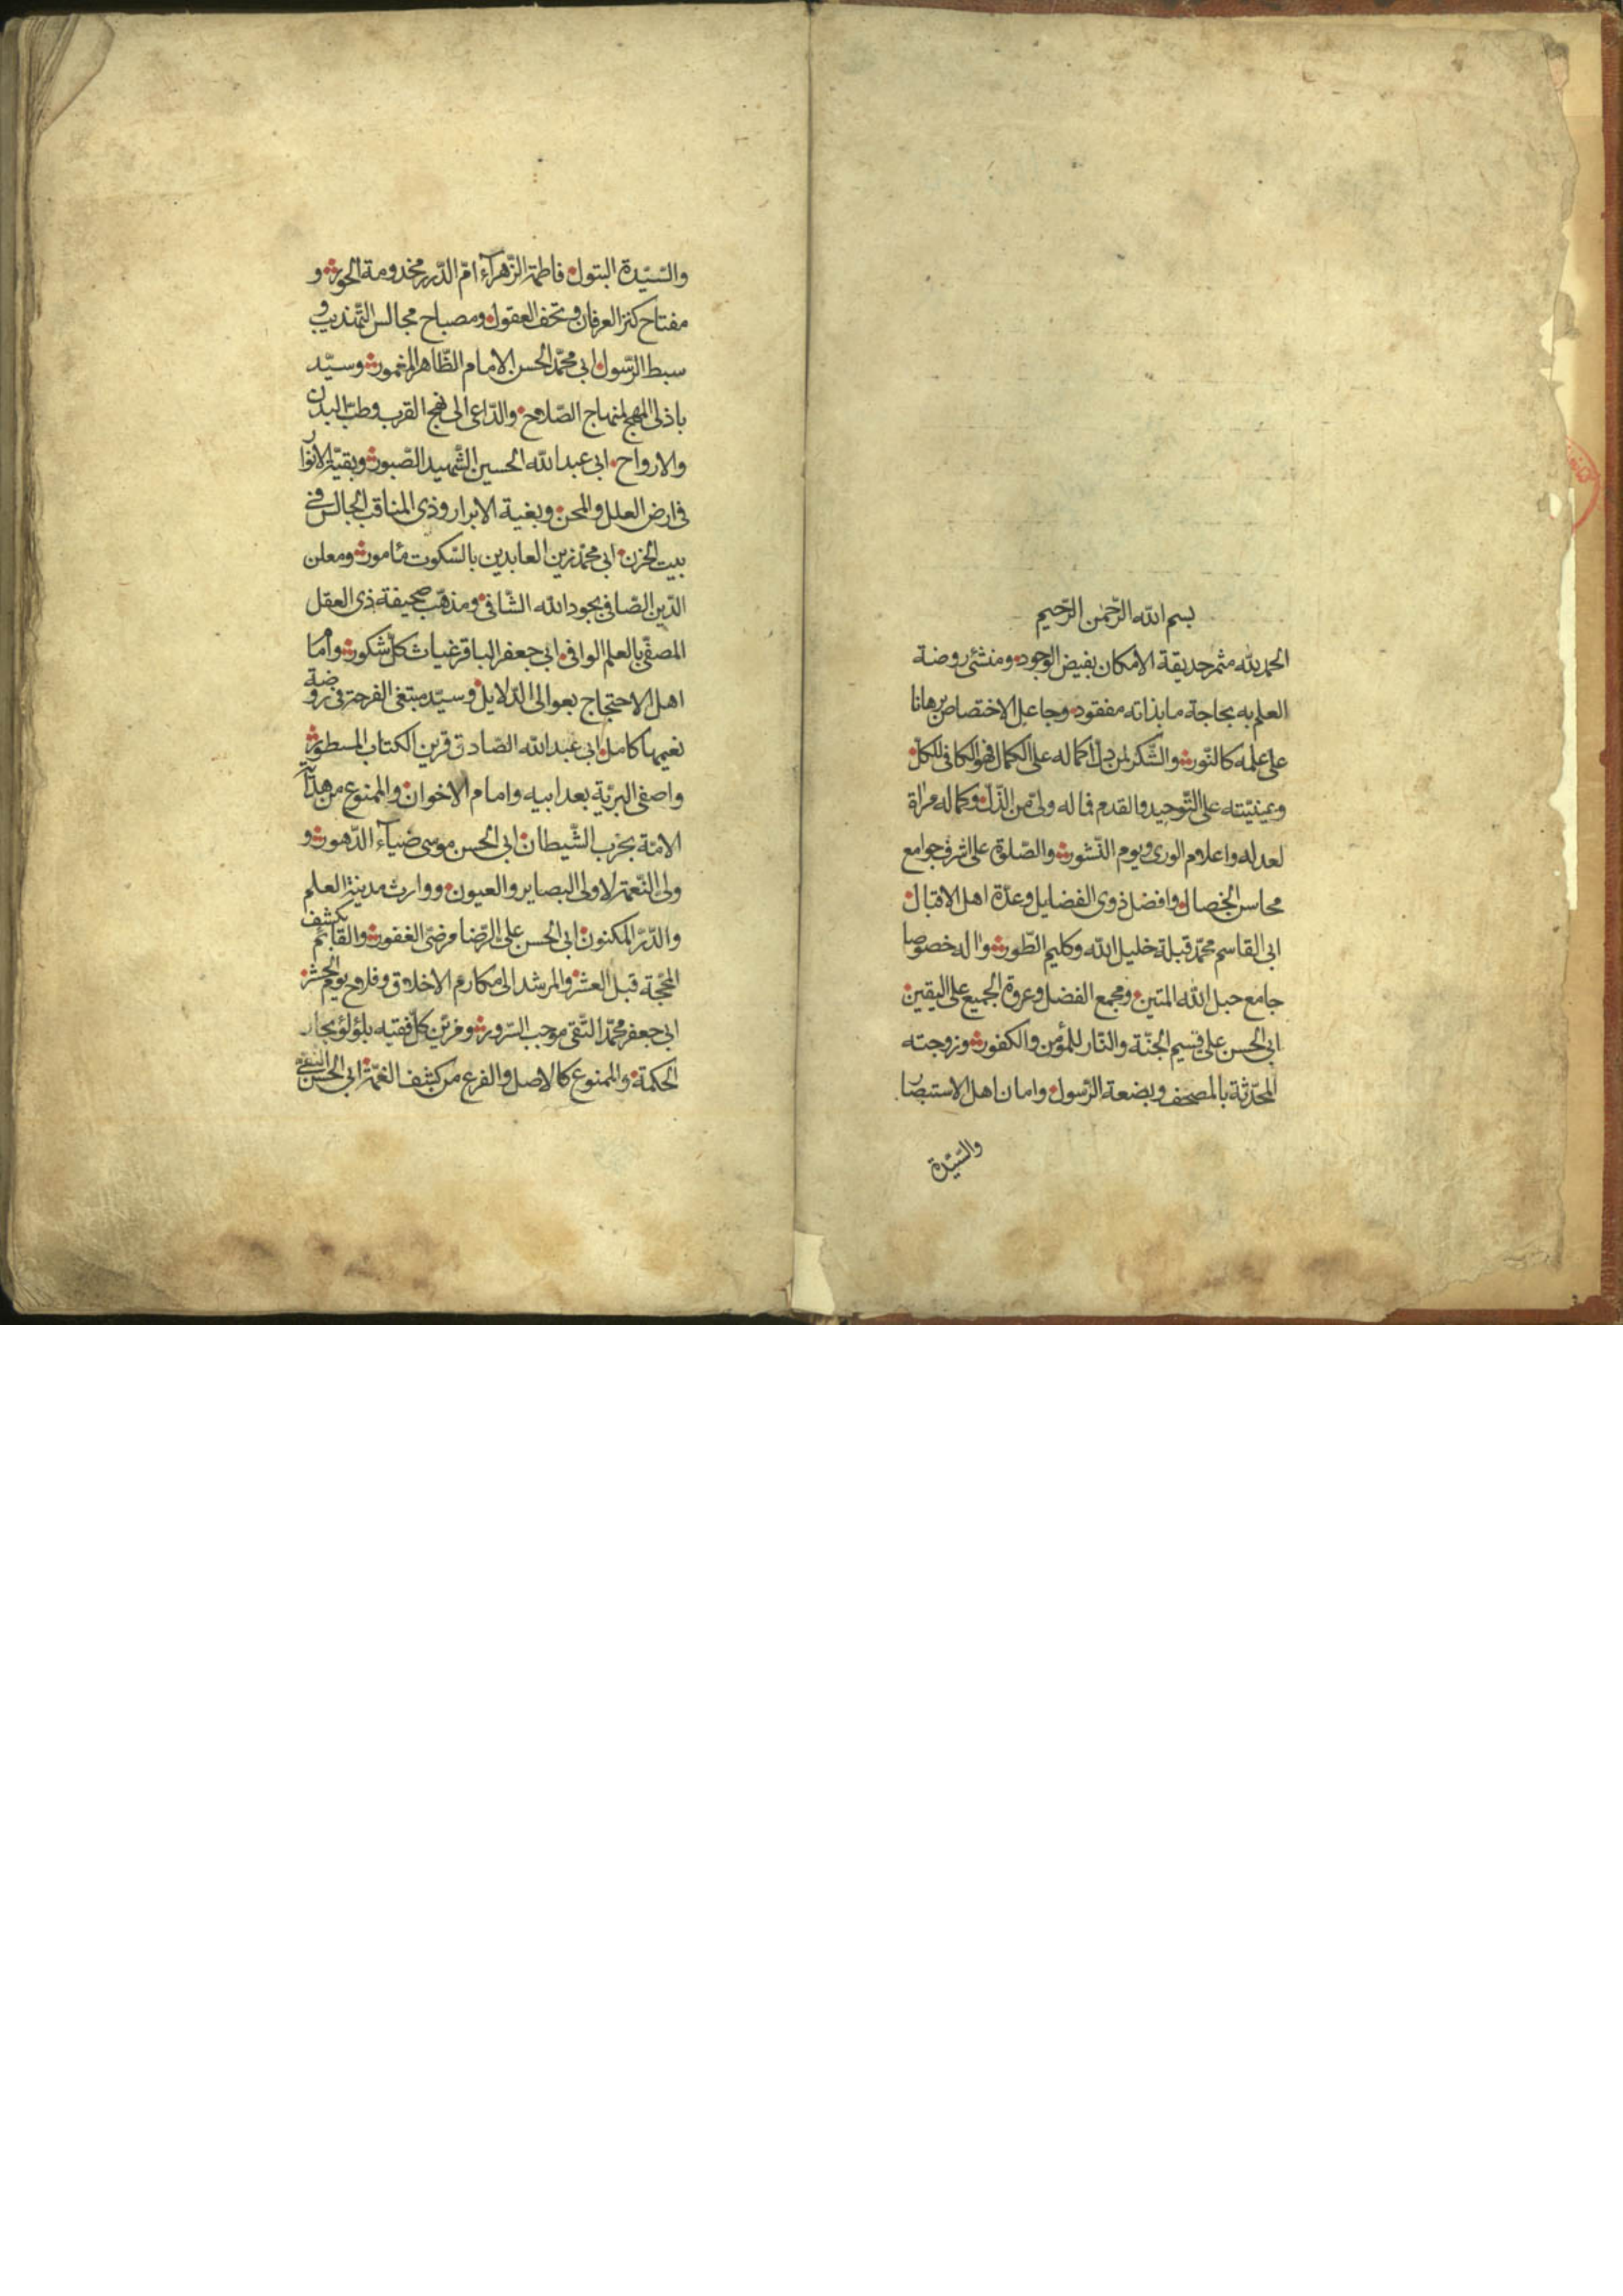 بسم الله الرّحمٰن الرّحيم
الحمد لله مثمر حديقة الأمكان بفيض الوجود ومنشئ روضة
العلم به بحاجة ما بذاته مفقود وجاعل الاختصاص برهانا
على علمه كالنّور والشّكر لمن دلّ اكماله على الكمال فهو الكافى للكلّ
وعينيّته على التّوحيد والقدم فماله ولىّ من الذّلّ وكماله مراة
لعدله واعلام الورى ويوم النّشور والصّلوة على اشرف جوامع
محاسن الخصال وافضل ذوى الفضايل وعدّة اهل الاقبال
ابى القاسم محمّد قبلة خليل الله وكليم الطّور واله خصوصا
جامع حبل الله المتين ومجمع الفضل وعروة الجميع على اليقين
ابى الحسن على قسيم الجنّة والنّار للمؤمن والكفور وزوجته
المحدّثة بالمصحف وبضعة الرّسول وامان اهل الاستبصار
والسّيّدة
والسّيّدة البتول فاطمة الزّهرآء امّ الدّرر مخدومة الحور و
مفتاح كنز العرفان وتحف العقول ومصباح مجالس التّهذيب و
سبط الرّسول ابى محمّد الحسن الامام الطّاهر المغمور وسيّد
باذلى المهج لمنهاج الصّلاح والدّاعى الى نهج القرب وطبّ البدن
والارواح ابى عبد الله الحسين الشّهيد الصّبور وبقيّة الانوا
فى ارض العلل والمحن وبغية الابرار وذى المناقب الجالس فى
بيت الحزن ابى محمّد زين العابدين بالسّكوت مأمور ومعلن
الدّين الصّافى بجود الله الشّافى ومذهّب صحيفة ذى العقل
المصفّى بالعلم الوافى ابى جعفر الباقر غياث كلّ شكور وامام
اهل الاحتجاج بعوالى الدّلايل وسيّد مبتغى الفرحة فى روضة
نعيمها كامل ابى عبد الله الصّادق قرين الكتاب المسطور و
واصفى البريّة بعد ابيه وامام الاخوان والممنوع من هداية
الامّة بحزب الشّيطان ابى الحسن موسى ضيآء الدّهور و
ولى النّعمة لاولى البصاير والعيون ووارث مدينة العلم
والدّرّ المكنون ابى الحسن على الرّضا مرضىّ الغفور والقائم بكشف
المحجّة قبل العشر والمرشد الى مكارم الاخلاق وفلاح يوم الحشر
ابى جعفر محمّد التّقى موجب السّرور ومزيّن كلّ فقيه بلؤلؤ بحار
الحكمة والممنوع كالاصل والفرع من كشف الغمّة ابى الحسن النّقى